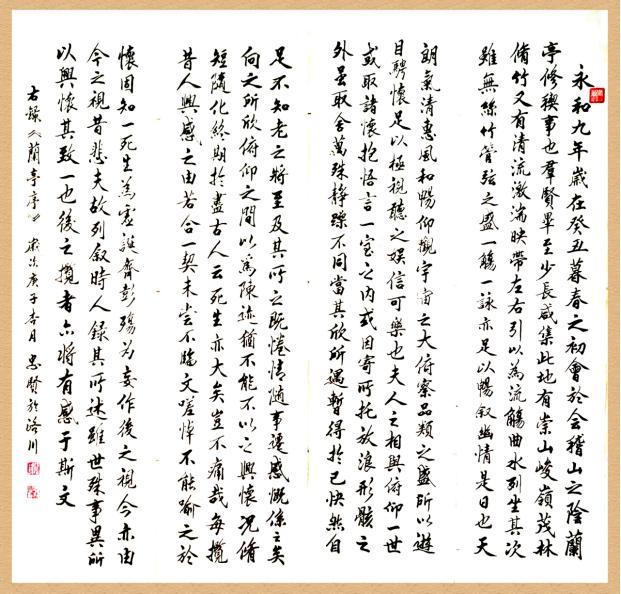 永和九年歲在癸丑暮春之初會於会稽山之陰蘭
亭修禊事也羣賢畢至少長咸集此地有崇山峻嶺茂林
脩竹又有清流激湍映帶左右引以為流觴曲水列坐其次
雖無絲竹管弦之盛一觴一詠亦足以暢叙幽情是日也天
朗氣清惠風和暢仰觀宇宙之大俯察品類之盛所以遊
目騁懷足以極視聽之娱信可樂也夫人之相與俯仰一世
或取諸懷抱悟言一室之内或因寄所托放浪形骸之
外虽取舍萬殊静躁不同當其欣所遇暫得於己快然自
足不知老之將至及其所之既惓情随事遷感慨係之矣
向之所欣俯仰之間以為陳迹猶不能不以之興懷况脩
短隨化終期於盡古人云死生亦大矣豈不痛哉每攬
昔人興感之由若合一契未嘗不臨文嗟悼不能喻之於
懷固知一死生為虛誕齊彭殤为妄作後之視今亦由
今之視昔悲夫故列叙時人録其所述雖世殊事異所
以興懷其致一也後之攬者亦將有感于斯文
右錄《蘭亭序》歲次庚子杏月忠賢於洛川